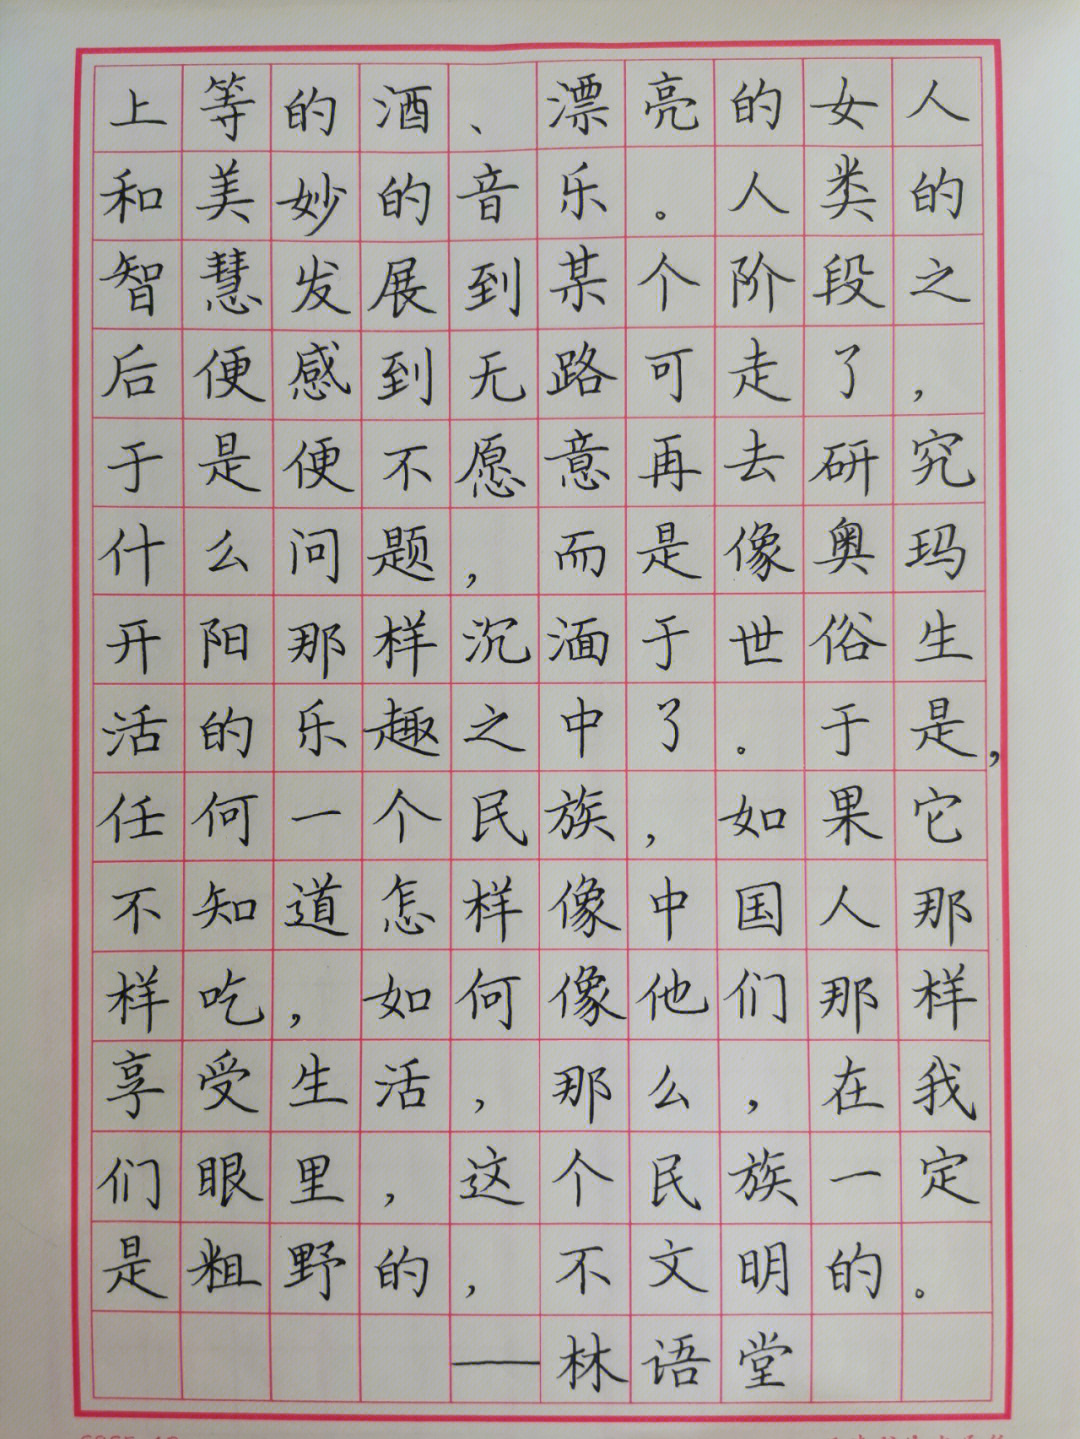 上等的酒、漂亮的女人
和美妙的音乐。人类的
智慧发展到某个阶段之
后便感到无路可走了，
于是便不愿意再去研究
什么问题，而是像奥玛
开阳那样沉湎于世俗生
活的乐趣之中了。于是，
任何一个民族，如果它
不知道怎样像中国人那
样吃，如何像他们那样
享受生活，那么，在我
们眼里，这个民族一定
是粗野的，不文明的。
——林语堂